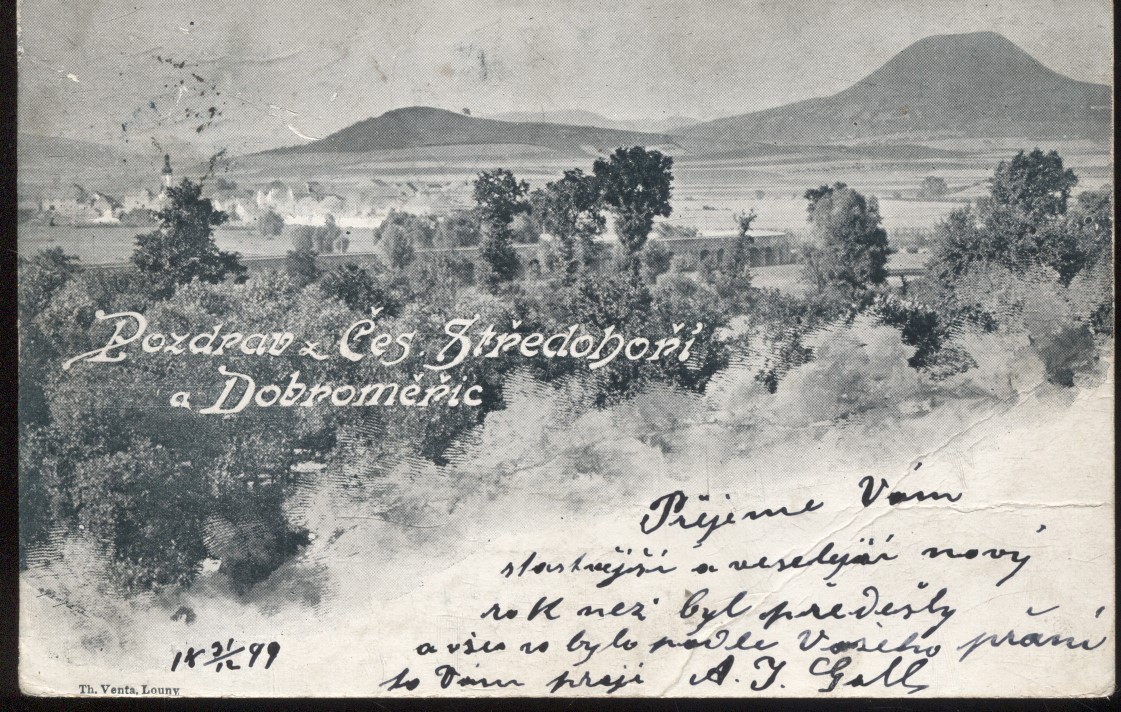 Pozdrav z Čes. Středohoří
a Dobroměřic
Přejeme Vám
stastnější a veselejší nový
rok než byl předešly
a všeo bylo podle Vašeho přání
to Vám přejí A. J. Gall
18 31/12 99
Th. Venta, Louny